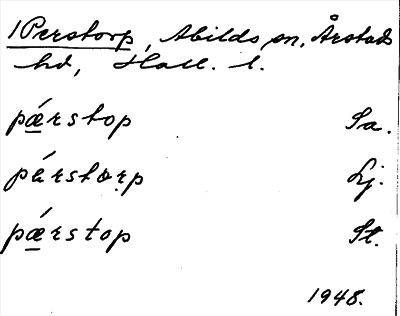 1 Perstorp, Abilds sn, Årstads
hd, Hall. l.
pǽrstop Sa.
pérstorp Lj.
pǽrstop St.
1948.